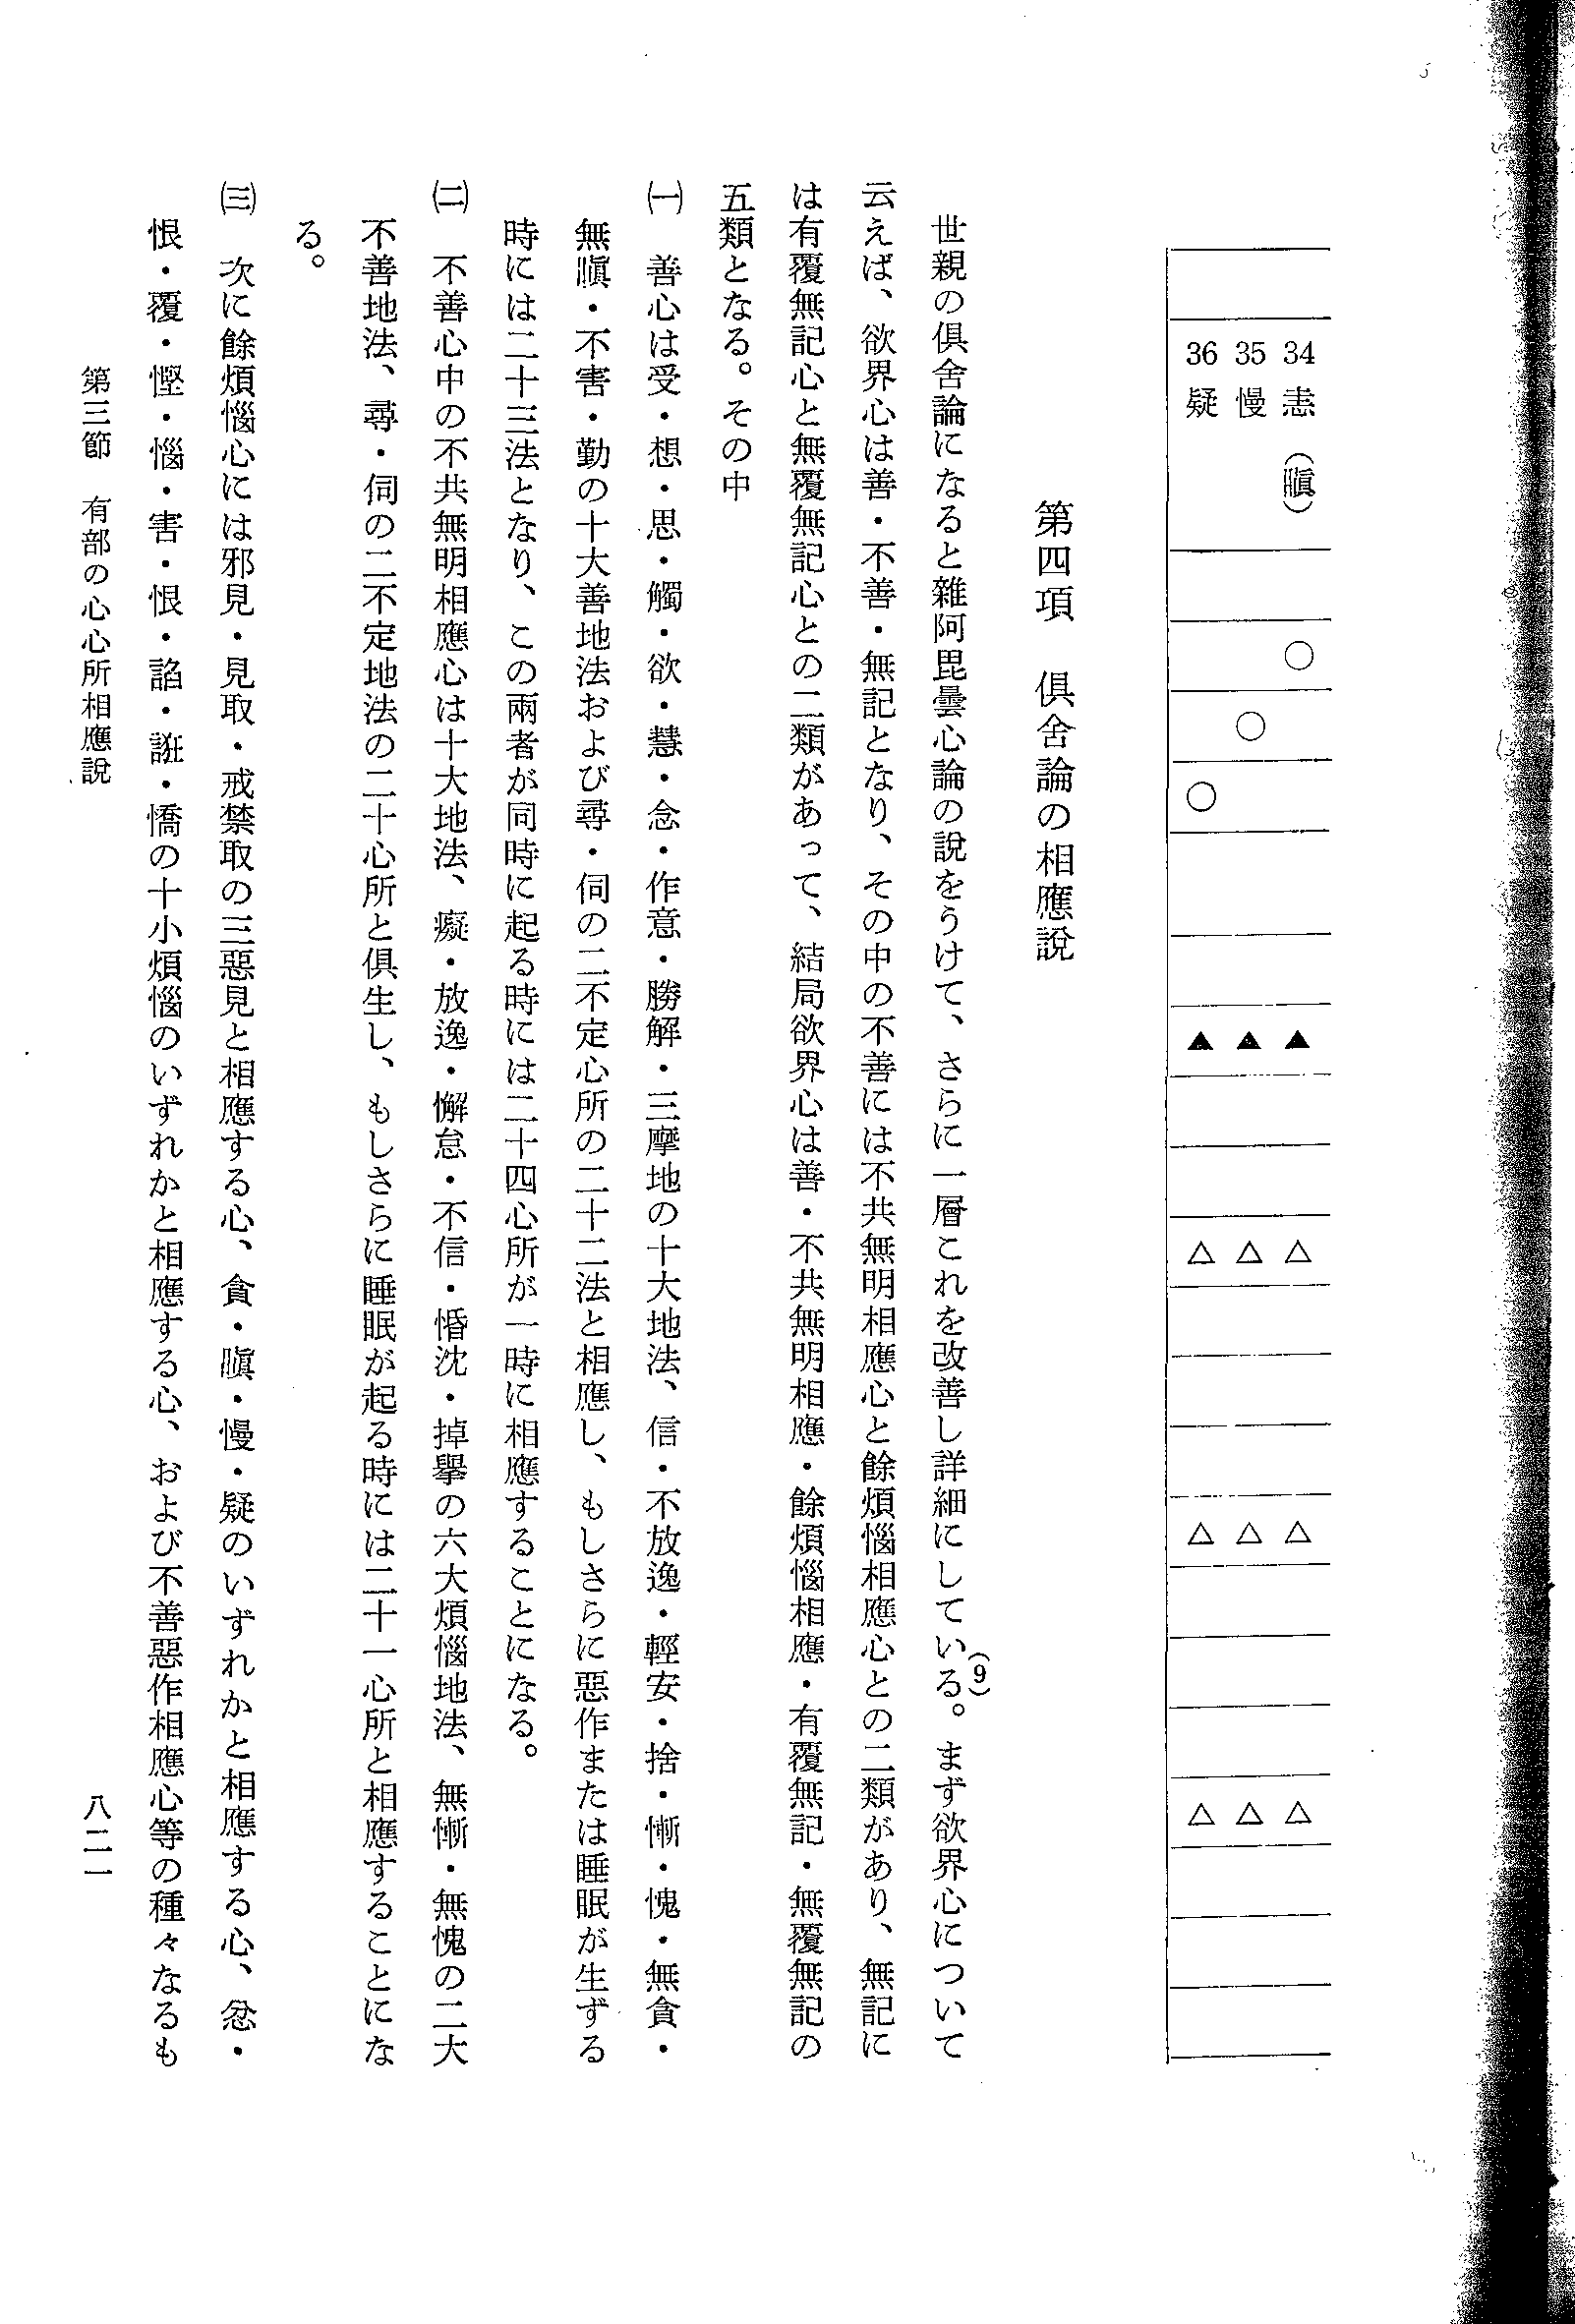 34 恚（瞋） ○ ▲ △ △ △
35 慢 ○ ▲ △ △ △
36 疑 ○ ▲ △ △ △
第四項　俱舍論の相應說
世親の俱舍論になると雜阿毘曇心論の說をうけて、さらに一層これを改善し詳細にしている(9)。まず欲界心について
云えば、欲界心は善・不善・無記となり、その中の不善には不共無明相應心と餘煩惱相應心との二類があり、無記に
は有覆無記心と無覆無記心との二類があって、結局欲界心は善・不共無明相應・餘煩惱相應・有覆無記・無覆無記の
五類となる。その中
㈠　善心は受・想・思・觸・欲・慧・念・作意・勝解・三摩地の十大地法、信・不放逸・輕安・捨・慚・愧・無貪・
無瞋・不害・勤の十大善地法および尋・伺の二不定心所の二十二法と相應し、もしさらに惡作または睡眠が生ずる
時には二十三法となり、この兩者が同時に起る時には二十四心所が一時に相應することになる。
㈡　不善心中の不共無明相應心は十大地法、癡・放逸・懈怠・不信・惛沈・掉擧の六大煩惱地法、無慚・無愧の二大
不善地法、尋・伺の二不定地法の二十心所と俱生し、もしさらに睡眠が起る時には二十一心所と相應することにな
る。
㈢　次に餘煩惱心には邪見・見取・戒禁取の三惡見と相應する心、貪・瞋・慢・疑のいずれかと相應する心、忿・
恨・覆・慳・惱・害・恨・諂・誑・憍の十小煩惱のいずれかと相應する心、および不善惡作相應心等の種々なるも
第三節　有部の心心所相應說
八二一